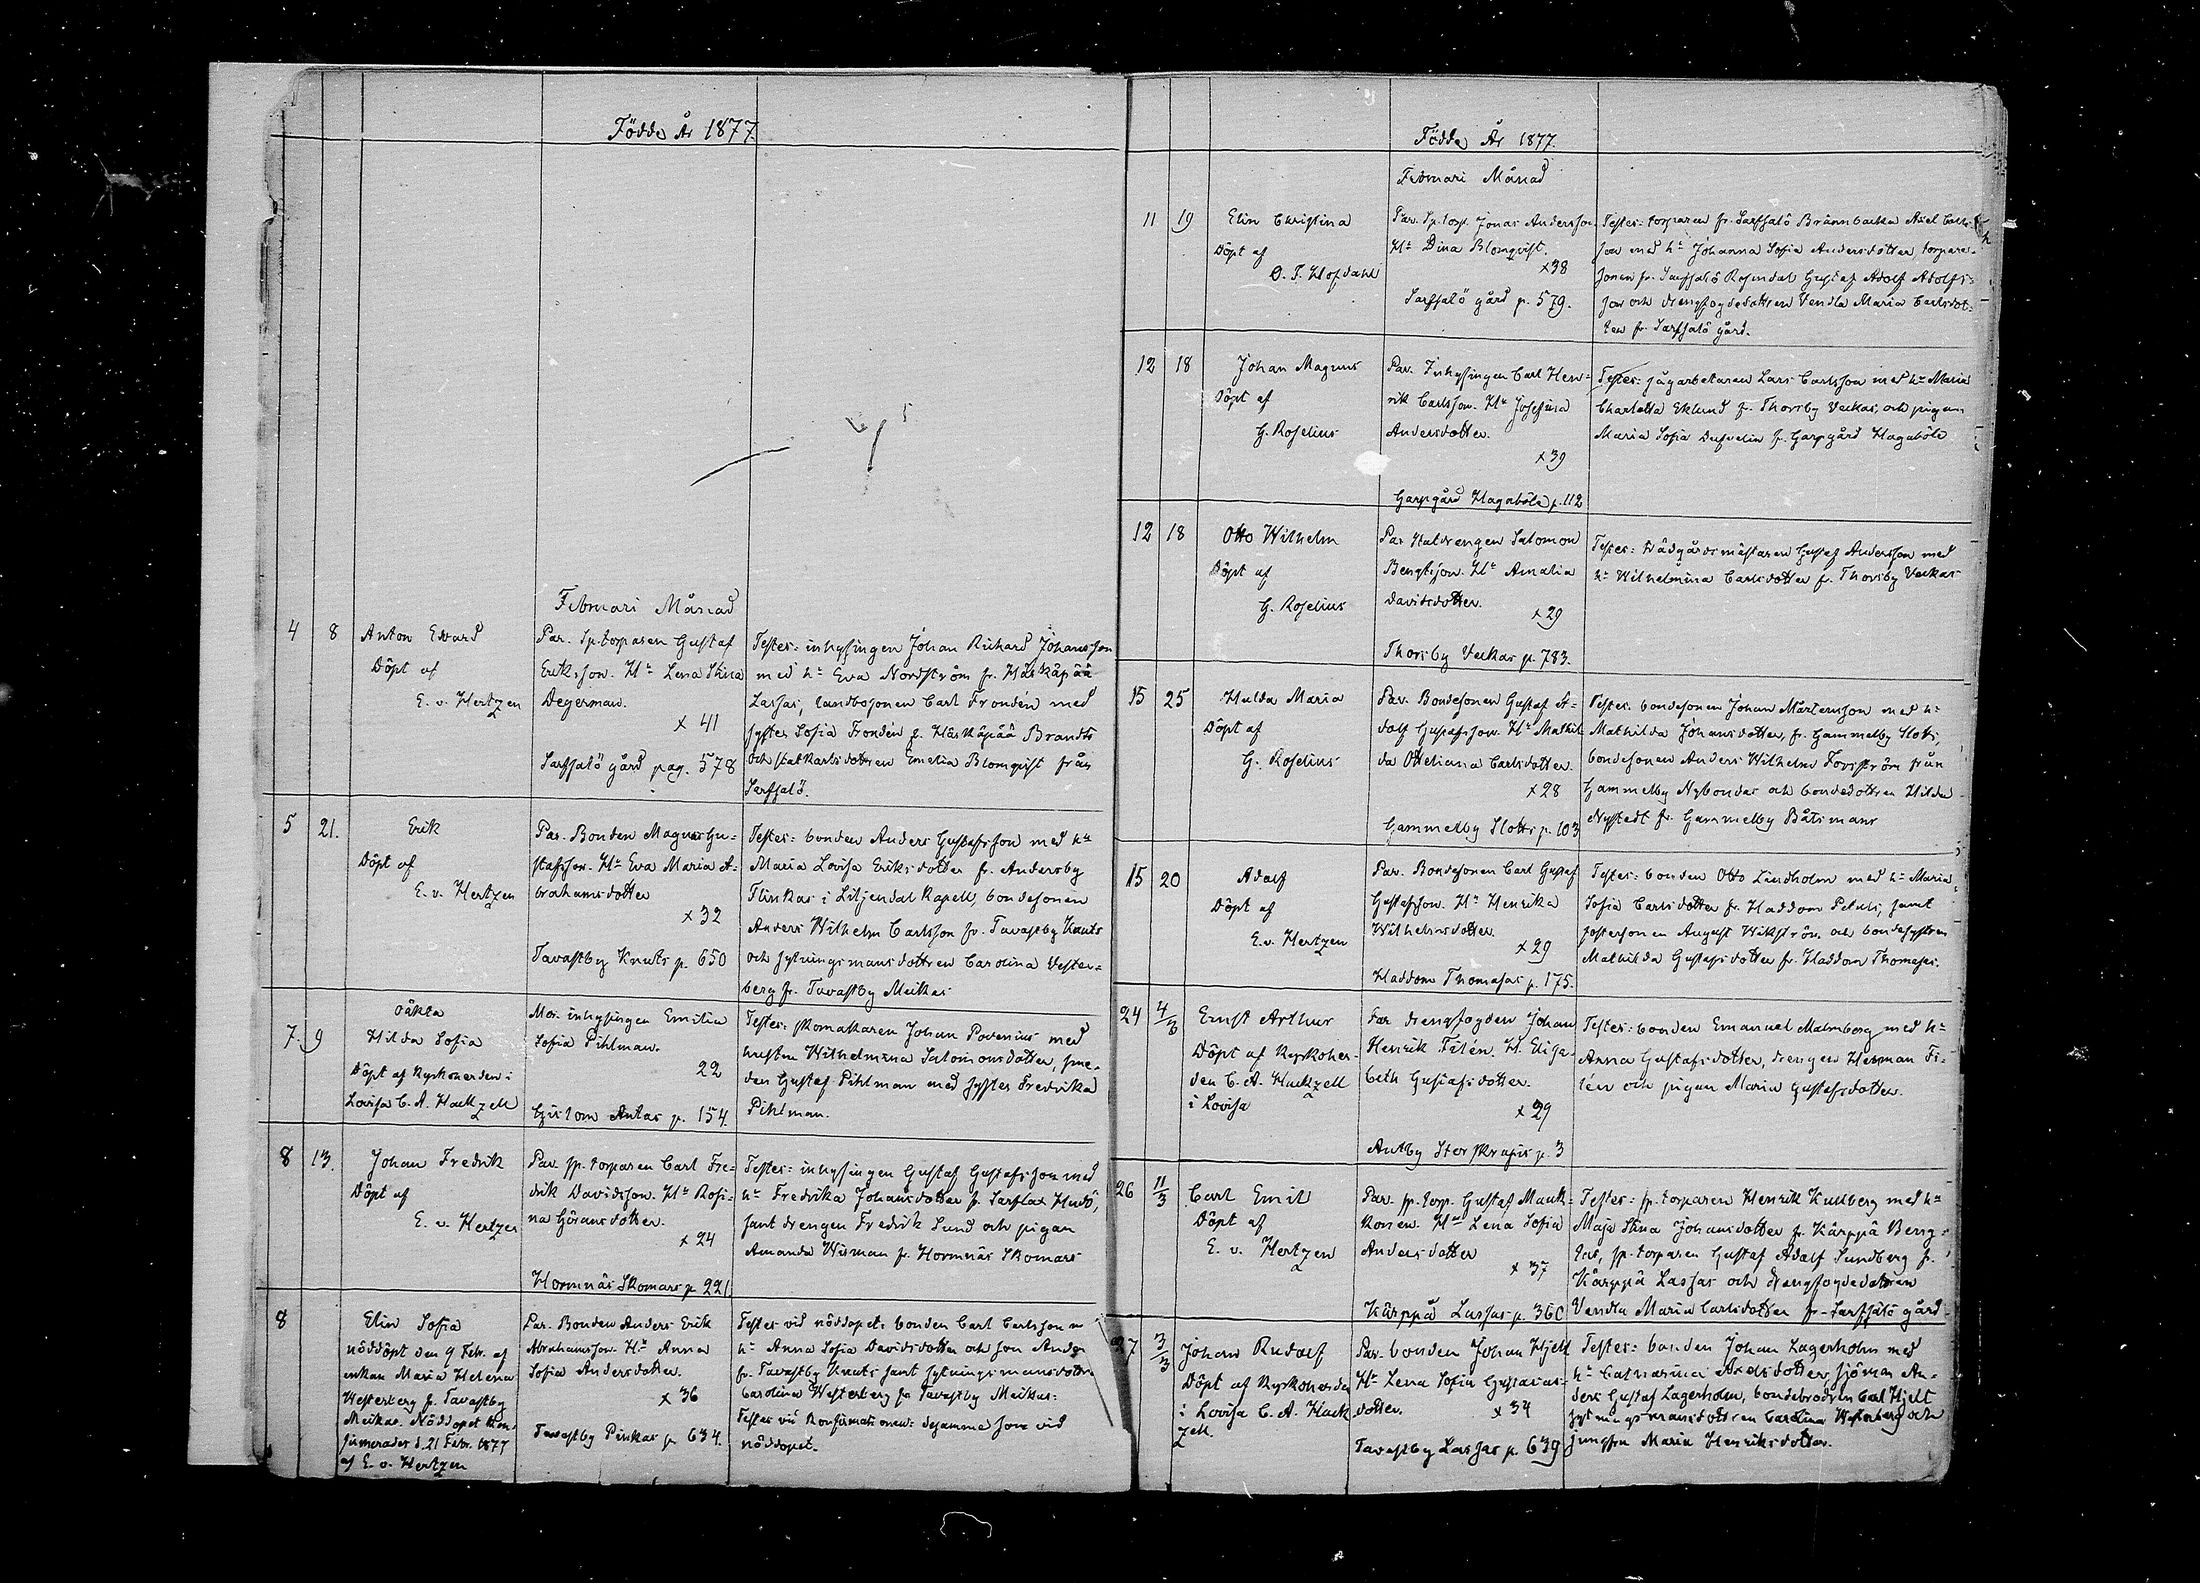 Födde År 1877.
Februari Månad
4 8 Anton Edvard
Döpt af
E. v. Hertzen
Par. Sp. torparen Gustaf
Eriksson. Hu Lena Stina
Degerman.
x 41
Sarfsalö gård pag. 578
Testes: inhysingen Johan Richard Johansson
med hu Eva Nordström fr. Härkäpää
Lassas, landbosonen Carl Frondén med
syster Sofia Frondén fr. Härkäpää Brandts
och statkarlsdottren Emelia Blomqvist från
Sarfsalö.
5 21. Erik
Döpt af
E. v. Hertzen
Par. Bonden Magnus Gu=
stafsson. Hu Eva Maria A=
brahamsdotter
x 32
Tavastby Knuts p. 650
Testes: bonden Anders Gustafsson med hu
Maria Lovisa Eriksdotter fr. Andersby
Flinkas i Liljendal Kapell, bondesonen
Anders Wilhelm Carlsson fr. Tavastby Knuts
och sytningsmansdottren Carolina Vester=
berg fr. Tavastby Meikas
7. 9 oäkta
Hilda Sofia
Döpt af Kyrkoherden i
Lovisa C. A. Hackzell
Mor. inhysingen Emilia
Sofia Pihlman.
22
Gislom Antas p. 154.
Testes: skomakaren Johan Povenius med
hustru Wilhelmina Salomonsdotter, sme-
den Gustaf Pihlman med syster Fredrika
Pihlman.
8 13. Johan Fredrik
Döpt af
E. v. Hertzen
Par. sp. torparen Carl Fre=
drik Davidsson. Hu Rosi=
na Göransdotter.
x 24
Hornnäs Skomars p. 221.
Testes: inhysingen Gustaf Gustafsson med
hu Fredrika Johansdotter fr. Sarflax Hudö,
samt drengen Fredrik Sund och pigan
Amanda Wisman fr. Hornnäs Skomars
8 Elin Sofia
nöddöpt den 9 Febr. af
enkan Maria Helena
Westerberg fr. Tavastby
Meikas. Nöddopet kon=
firmerades d. 21 Febr. 1877
af E. v. Hertzen
Par. Bonden Anders Erik
Abrahamsson. Hu Anna
Sofia Andersdotter.
x 36
Tavastby Pinkas p. 634.
Testes vid nöddopet: bonden Carl Carlsson m
hu Anna Sofia Davidsdotter och son Anders
fr. Tavastby Knuts samt sytningsmansdottren
Carolina Westerberg fr Tavastby Meikas:
Testes vid Konfirmationen: desamma som vid
nöddopet.
Födde År 1877.
Februari Månad
11 19 Elin Christina
Döpt af
O. T. Hofdahl
Par. Sp. torp. Jonas Andersson
Hu Dina Blomqvist.
x38
Sarfsalö gård p. 579.
Testes: torparen fr. Sarfsalö Brännbacka Axel Carls
son med hu Johanna Sofia Andersdotter, torpare-
sonen fr. Sarfsalö Rosendal Gustaf Adolf Adolfs=
son och drengfogdedottren Vendla Maria Carlsdot=
ter fr. Sarfsalö gård.
12 18 Johan Magnus
Döpt af
G. Roselius
Par. Inhysingen Carl Hen=
rik Carlsson. Hu Josefina
Andersdotter.
x39
Garpgård Hagaböle p. 112
Testes: sågarbetaren Lars Carlsson med hu Maria
Charlotta Eklund fr. Thorsby Veckas, och pigan
Maria Sofia Dufvelin fr. Garpgård Hagaböle
12 18 Otto Wilhelm
Döpt af
G. Roselius
Par Statdrengen Salomon
Bengtsson. Hu Amalia
Davidsdotter.
x29
Thorsby Veckas p. 783.
Testes: trädgårdsmästaren Gustaf Andersson med
hu Wilhelmina Carlsdotter fr. Thorsby Veckas
15 25 Hulda Maria
Döpt af
G. Roselius
Par. Bondesonen Gustaf A=
dolf Gustafsson. Hu Mathil
da Otteliana Carlsdotter.
x28
Gammelby Slotts p. 103
Testes. bondesonen Johan Mårtensson med hu
Mathilda Johansdotter, fr. Gammelby Slotts,
bondesonen Anders Wilhelm Forsström från
Gammelby Nybondas och bondedottren Hilda
Nystedt fr. Gammelby Båtsmans
15 20 Adolf
Döpt af
E. v. Hertzen
Par. Bondesonen Carl Gustaf
Gustafsson. Hu Henrika
Wilhelmsdotter.
x29
Haddom Thomasas p. 175.
Testes: bonden Otto Lindholm med hu Maria
Sofia Carlsdotter fr. Haddom Pekas, samt
fostersonen August Wikström och bondesystren
Mathilda Gustafsdotter fr. Haddom Thomasas.
24 4/3 Ernst Arthur
Döpt af Kyrkoher-
den C. A. Hackzell
i Lovisa
Par drengfogden Johan
Henrik Filén. H. Elisa-
beth Gustafsdotter.
x29
Antby Storskrafvis p. 3
Testes: bonden Emanuel Malmberg med hu
Anna Gustafsdotter, drengen Herman Fi=
lén och pigan Maria Gustafsdotter.
26 11/3 Carl Emil
Döpt af
E. v. Hertzen
Par. sp. torp. Gustaf Mauk=
konen. Hu Lena Sofia
Andersdotter
x 37
Kärppä Lassas p. 360
Testes: sp. torparen Henrik Kullberg med hu
Maja Stina Johansdotter fr. Kärppä Beng=
tas, sp. torparen Gustaf Adolf Sundberg fr.
Kärppä Lassas och drengfogdedottren
Vendla Maria Carlsdotter fr. Sarfsalö gård
27 3/3 Johan Rudolf
Döpt af Kyrkoherden
i Lovisa C. A. Hack
zell.
Par. bonden Johan Hjelt
Hu Lena Sofia Gustafs-
dotter.
x 34
Tavastby Lassas p. 639
Testes: bonden Johan Lagerholm med
hu Catharina Axelsdotter, sjöman An=
ders Gustaf Lagerholm, bondebrodren Carl Hjelt
sytningsmansdottren Carolina Westerberg och
jungfru Maria Henriksdotter.